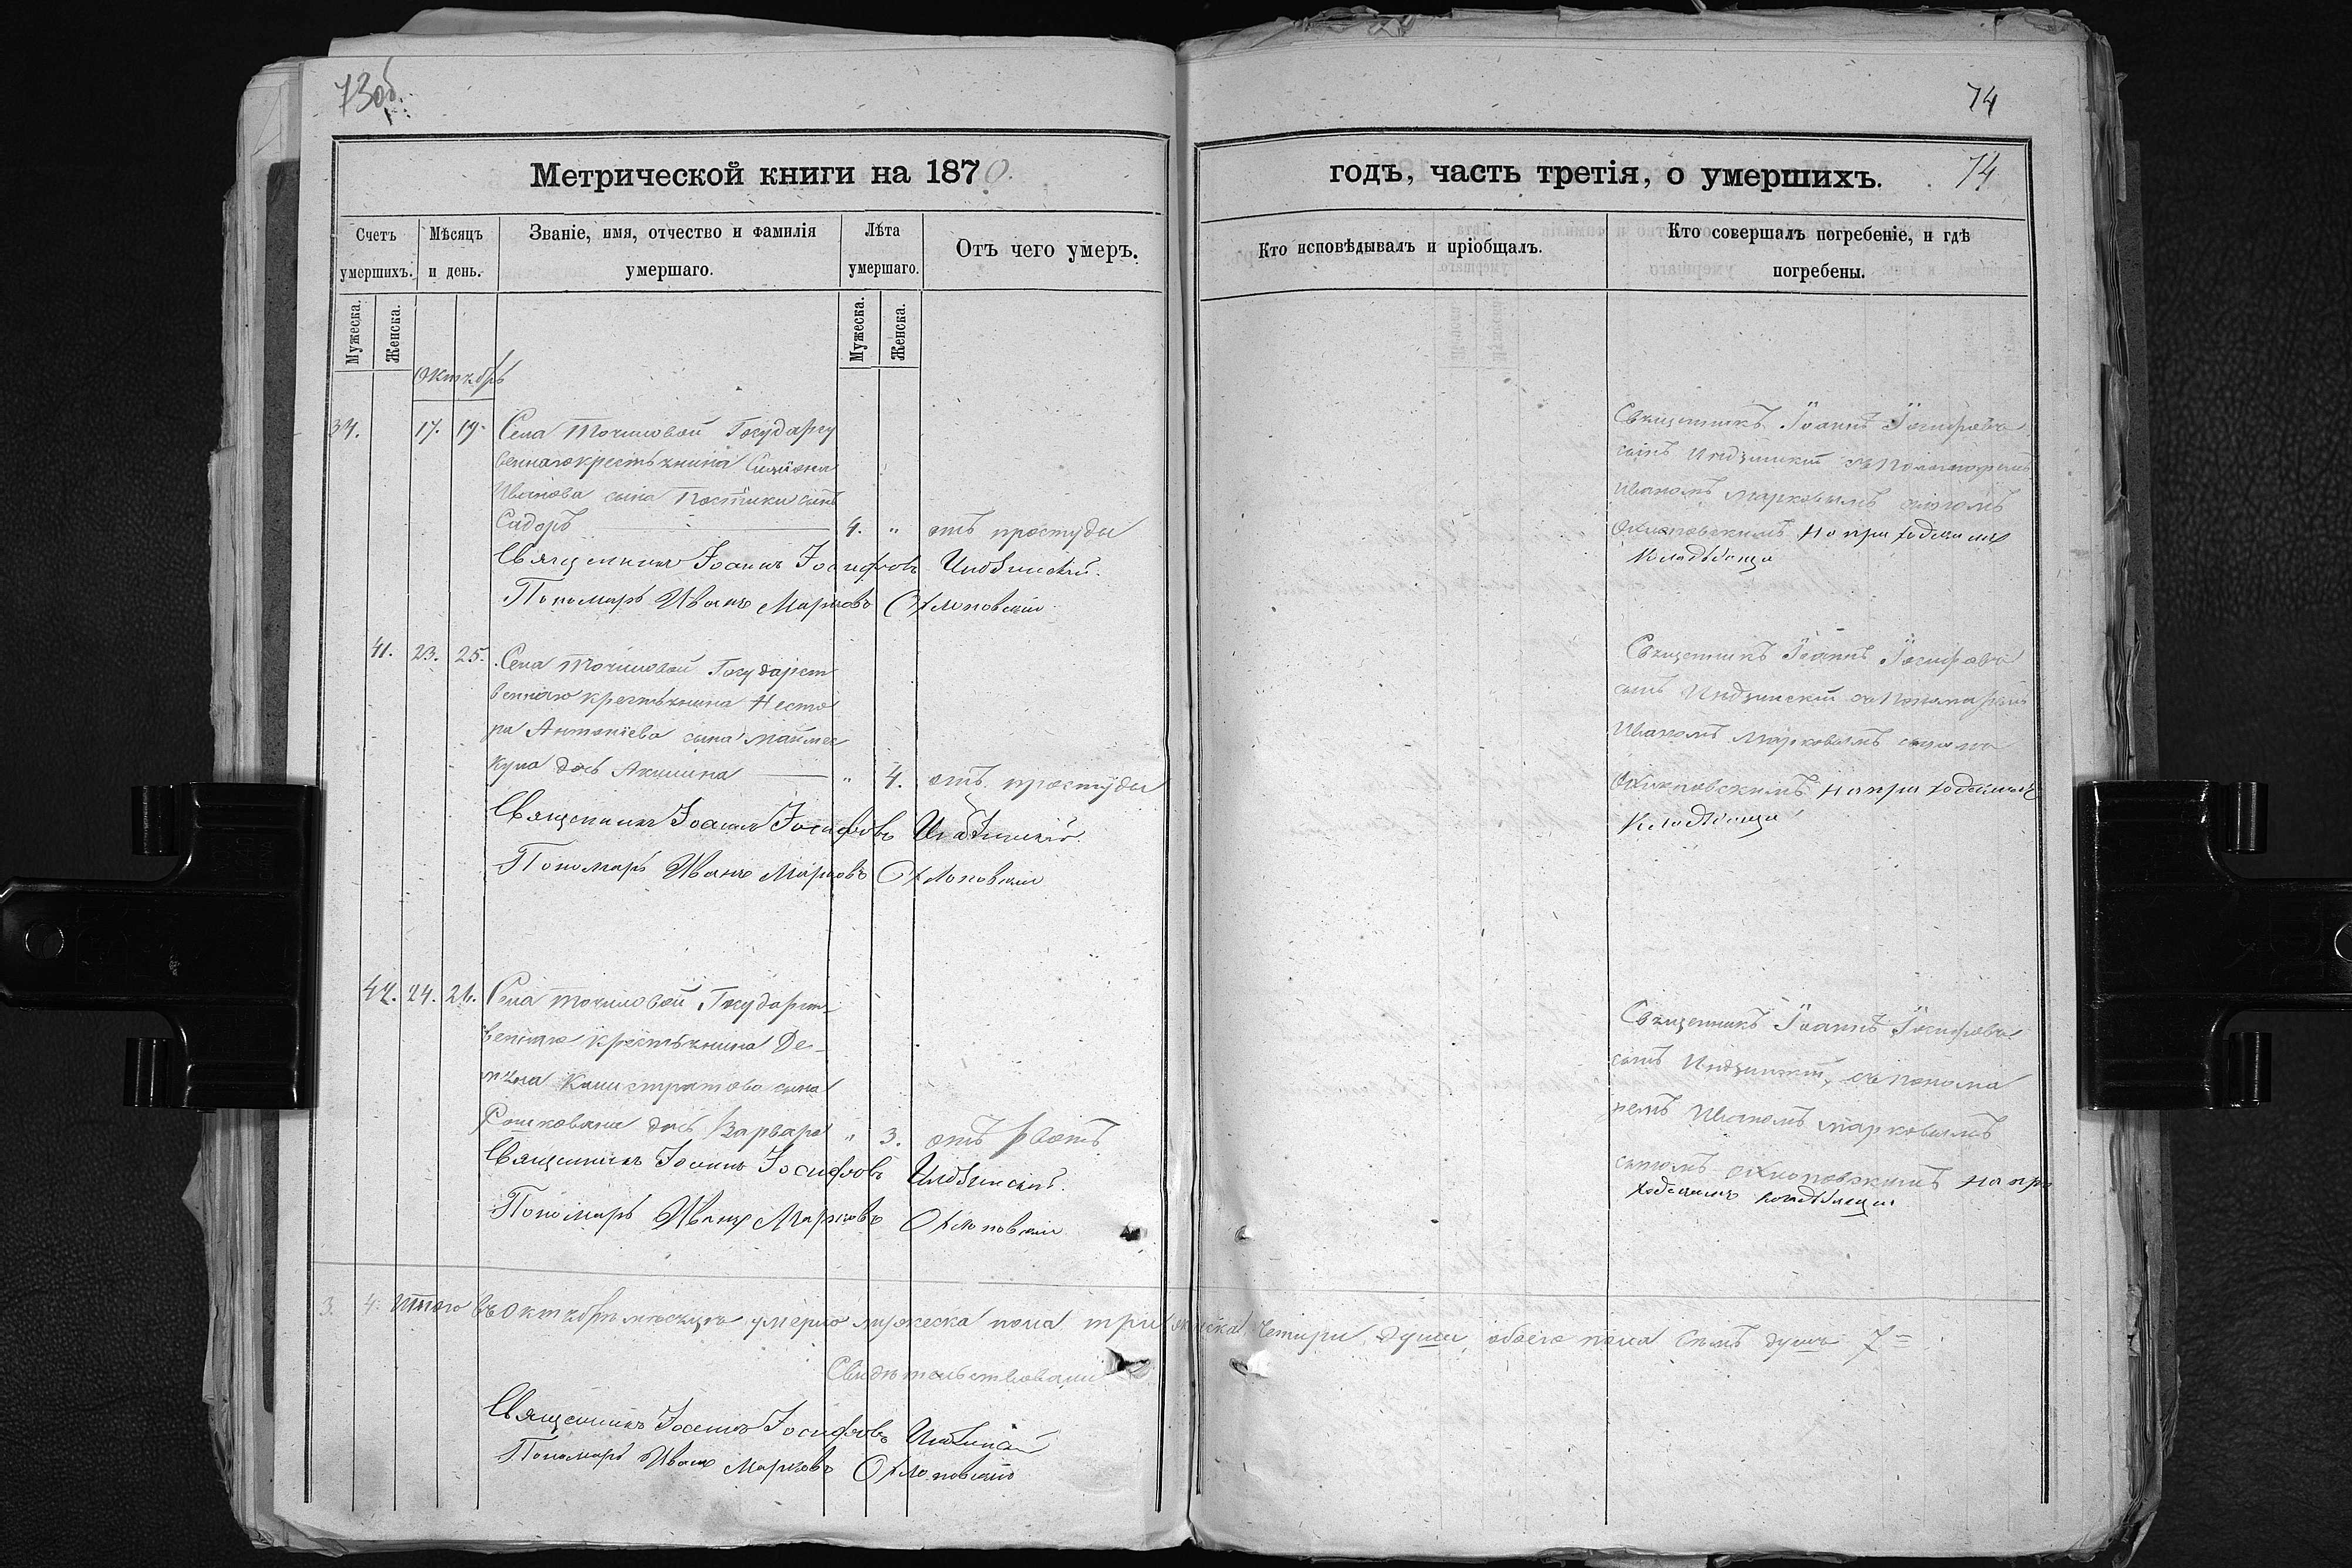 73об.
Метрической книги на 1870.
Счетъ умершихъ.
Мѣсяцъ и день.
Званіе, имя, отчество и фамилія умершаго.
Лѣта умершаго.
Отъ чего умеръ.
Мужеска.
Женска.
Мужеска.
Женска.
Октябрь
34. 17. 19. Села Точиловой Государс
веннаго крестьянина Симіона
Иванова сына сынъ
Сидоръ 4. " отъ простуды
Священникъ Іоаннъ Іосифовъ Индзинскій.
Пономарь Иванъ Марковъ
41. 23. 25. Села Точиловой Государст
веннаго крестьянина Несто
ра Антоніева сына
дочь Акилина " 4. отъ простуды
Священникъ Іоаннъ Іосифовъ Индзинскій.
Пономарь Иванъ Марковъ
42. 24. 26. Села Точиловой Государст
веннаго крестьянина Де
сына
дочь Варвара " 3. отъ
Священникъ Іоаннъ Іосифовъ Индзинскій.
Пономарь Иванъ Марковъ
3. 4. Итого въ Октябрѣ мѣсяцѣ умерло мужеска пола три женска четыри души, обоего пола семь душъ 7=
Свидѣтельствовали
Священникъ Іоаннъ Іосифовъ Индзинскій
Пономарь Иванъ Марковъ
74
годъ, часть третія, о умершихъ. 74
Кто исповѣдывалъ и пріобщалъ.
Кто совершалъ погребеніе, и гдѣ
погребены.
Священникъ Іоаннъ Іосифовъ
сынъ Индзинскій съ Пономаремъ
Иваномъ Марковымъ сыномъ
на приходскомъ
кладбище
Священникъ Іоаннъ Іосифовъ
сынъ Индзинскій съ Пономаремъ
Иваномъ Марковымъ сыномъ
на приходскомъ
кладбище
Священникъ Іоаннъ Іосифовъ
сынъ Индзинскій, съ понома
ремъ Иваномъ Марковымъ
сыномъ на при
ходскомъ кладбище